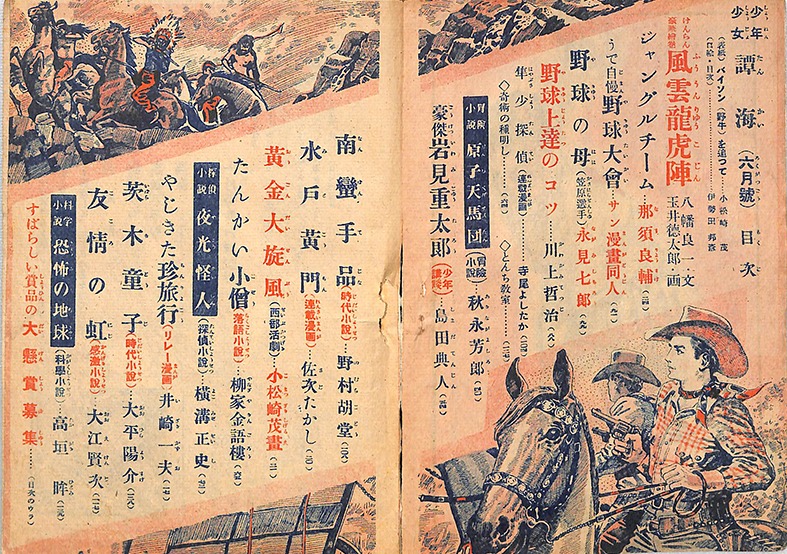 少年少女 譚海(六月號)目次
(表紙)バイソン(野牛)を追つて……小松崎 茂
(口絵・目次)……伊勢田 邦彦
風雲龍虎陣 八幡良一・文 玉井徳太郎・画
ジャングルチーム……那須良輔
うで自慢野球大會……サン漫畫同人
野球の母(笠原選手)……永見七郎
野球上達のコツ……川上哲治
隼少年探偵(連載漫画)……寺尾よしたか
◇奇術の種明し
◇とんち教室
冒険小説 原子天馬団(冒險小說)……秋永芳郎
豪傑岩見重太郎(少年講談)……島田典人
南蠻手品(時代小說)……野村胡堂
水戸黄門(連載漫画)……佐次たかし
黄金大旋風(西部活劇)……小松崎茂畫
たんかい小僧(落語小說)……柳家金語樓
探偵小説 夜光怪人(探偵小說)……横溝正史
やじきた珍旅行(リレー漫画)……井崎一夫
茨木童子(時代小說)……大平陽介
友情の虹(感激小說)……大江賢次
科学小説 恐怖の地球(科學小說)……高垣 眸
すばらしい賞品の大懸賞募集……(目次のウラ)